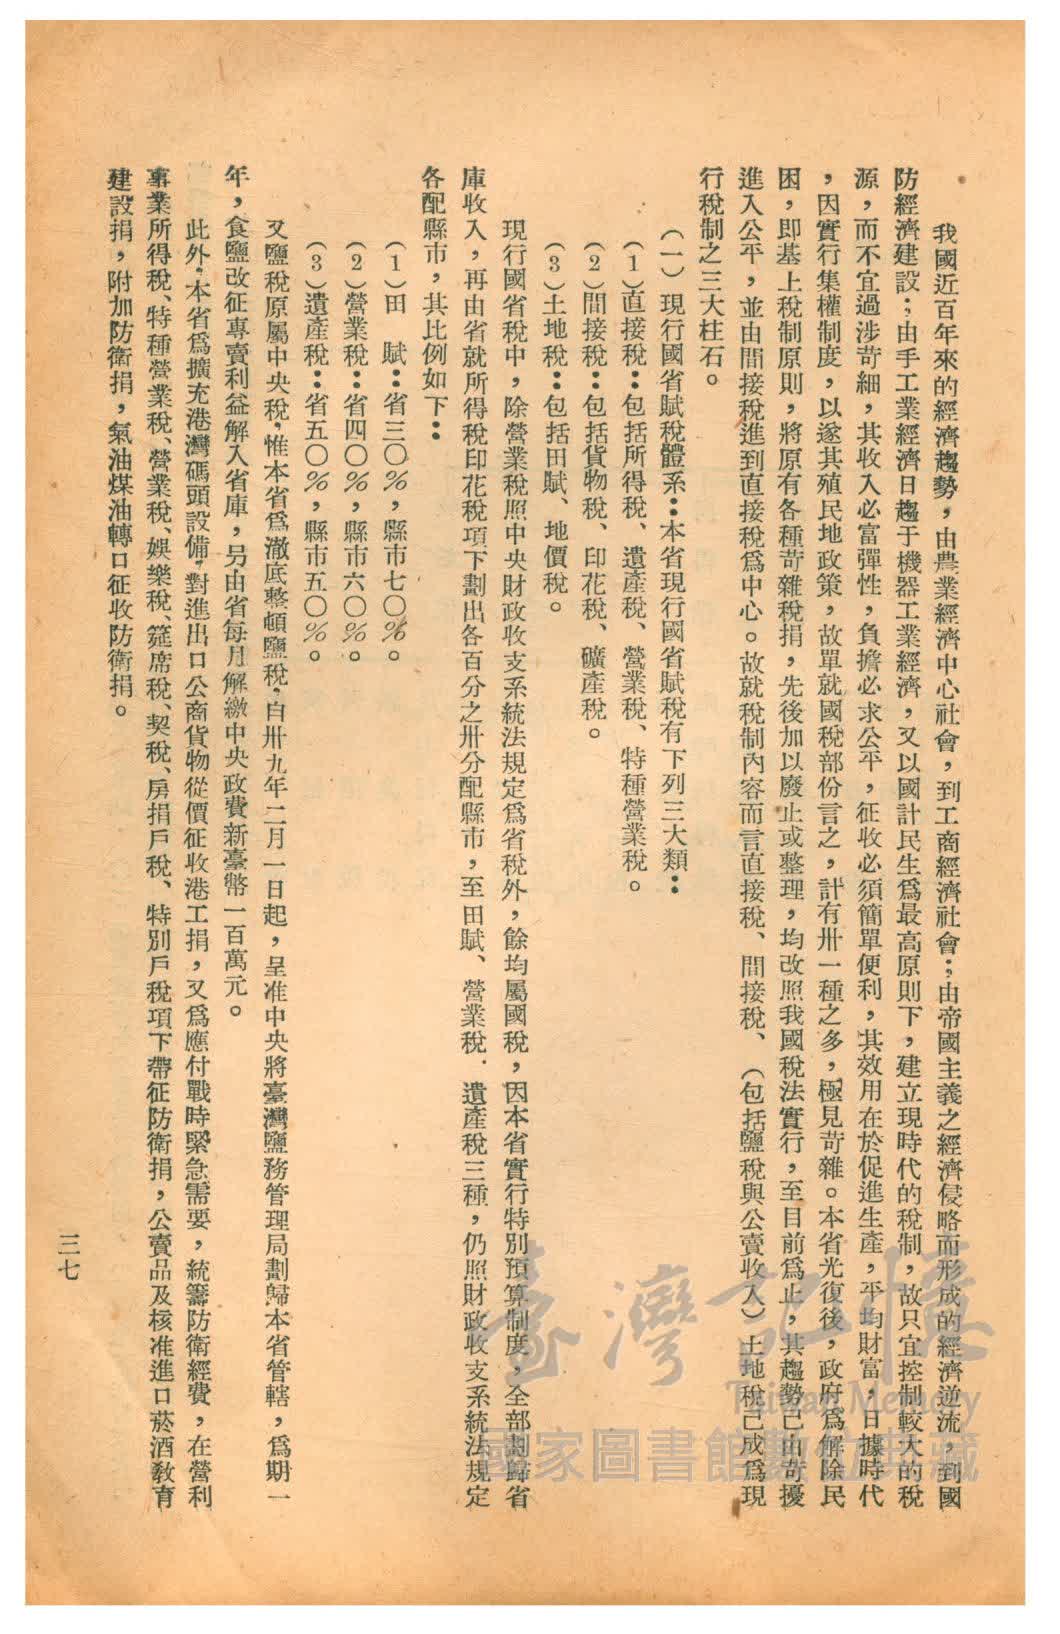 我國近百年來的經濟趨勢，由農業經濟中心社會，到工商經濟社會；由帝國主義之經濟侵略而形成的經濟逆流，到國
防經濟建設；由手工業經濟日趨于機器工業經濟，又以國計民生爲最高原則下，建立現時代的稅制，故只宜控制較大的稅
源，而不宜過涉苛細，其收入必富彈性，負擔必求公平，征收必須簡單便利，其效用在於促進生產，平均財富，日據時代
，因實行集權制度，以遂其殖民地政策，故單就國稅部份言之，計有卅一種之多，極見苛雜。本省光復後，政府爲解除民
困，即基上稅制原則，將原有各種苛雜稅捐，先後加以廢止或整理，均改照我國稅法實行，至目前爲止，其趨勢已由苛擾
進入公平，並由間接稅進到直接稅爲中心。故就稅制內容而言直接稅、間接稅、（包括鹽稅與公賣收入）土地稅已成爲現
行稅制之三大柱石。
（一）現行國省賦稅體系：本省現行國省賦稅有下列三大類：
（1）直接稅：包括所得稅、遺產稅、營業稅、特種營業稅。
（2）間接稅：包括貨物稅、印花稅、礦產稅。
（3）土地稅：包括田賦、地價稅。
現行國省稅中，除營業稅照中央財政收支系統法規定爲省稅外，餘均屬國稅，因本省實行特別預算制度，全部劃歸省
庫收入，再由省就所得稅印花稅項下劃出各百分之卅分配縣市，至田賦、營業稅．遺產稅三種，仍照財政收支系統法規定
各配縣市，其比例如下：
（1）田　賦：省三〇％，縣市七〇％。
（2）營業稅：省四〇％，縣市六〇％。
（3）遺產稅：省五〇％，縣市五〇％。
又鹽稅原屬中央稅，惟本省爲澈底整頓鹽稅，自卅九年二月一日起，呈准中央將臺灣鹽務管理局劃歸本省管轄，爲期一
年，食鹽改征專賣利益解入省庫，另由省每月解繳中央政費新臺幣一百萬元。
此外，本省爲擴充港灣碼頭設備，對進出口公商貨物從價征收港工捐，又爲應付戰時緊急需要，統籌防衛經費，在營利
事業所得稅、特種營業稅、營業稅、娛樂稅、筵席稅、契稅、房捐戶稅、特別戶稅項下帶征防衛捐，公賣品及核准進口菸酒敎育
建設捐，附加防衛捐，氣油煤油轉口征收防衛捐。
三七
臺灣記憶
Taiwan Memory
國家圖書館數位典藏